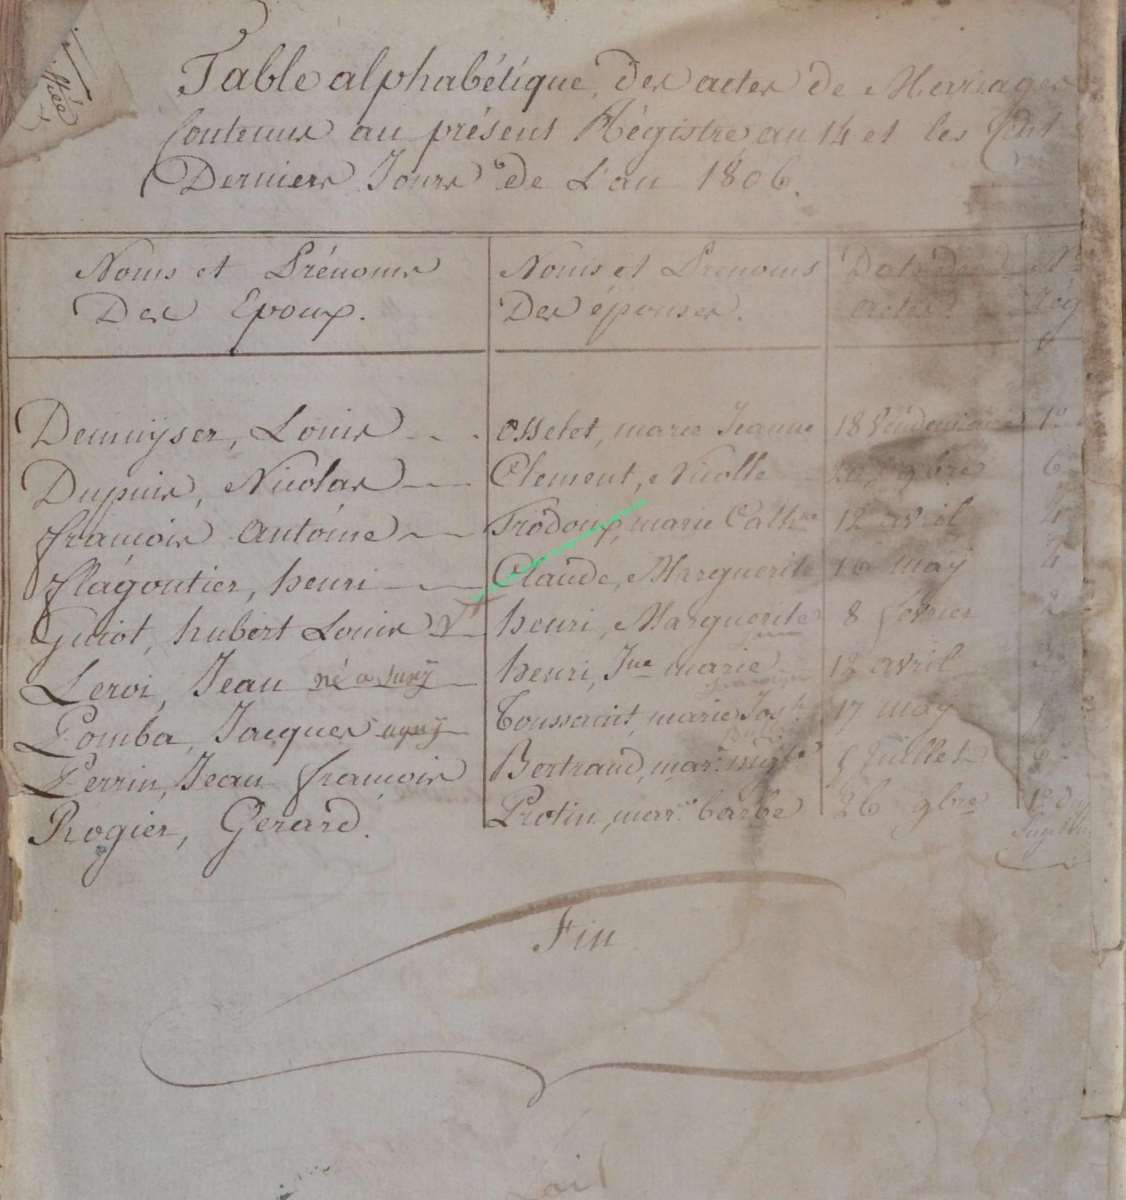 Table alphabétique des actes de Mariages
Contenus au présent Régistre, an 14 et les Cent
Derniers Jours de L'an 1806.
Noms et Prénoms Des Epoux. Noms et Prenoms Des épouses. Date des actes
Demuyser, Louis Osselet, marie Jeanne 18 Vendemiaire 1º
Dupuis, Nicolas Clement, Nicolle 9bre 6
françois Antoine Trodoux, marie Cathne 12 avril 4
flagoutier, henri Claude, Marguerite 10 may 4
Guiot, hubert Louis henri, Marguerite 8 fevrier 2
Leroi, Jean né a Juxÿ henri, Jne marie 12 avril
Lomba, Jacques Toussaint, marie Josh. 17 maÿ
Perrin, Jean françois Bertrand, mar. Juillet 6
Rogier, Gerard. Protin, mar. barbe 26 9bre
Fin